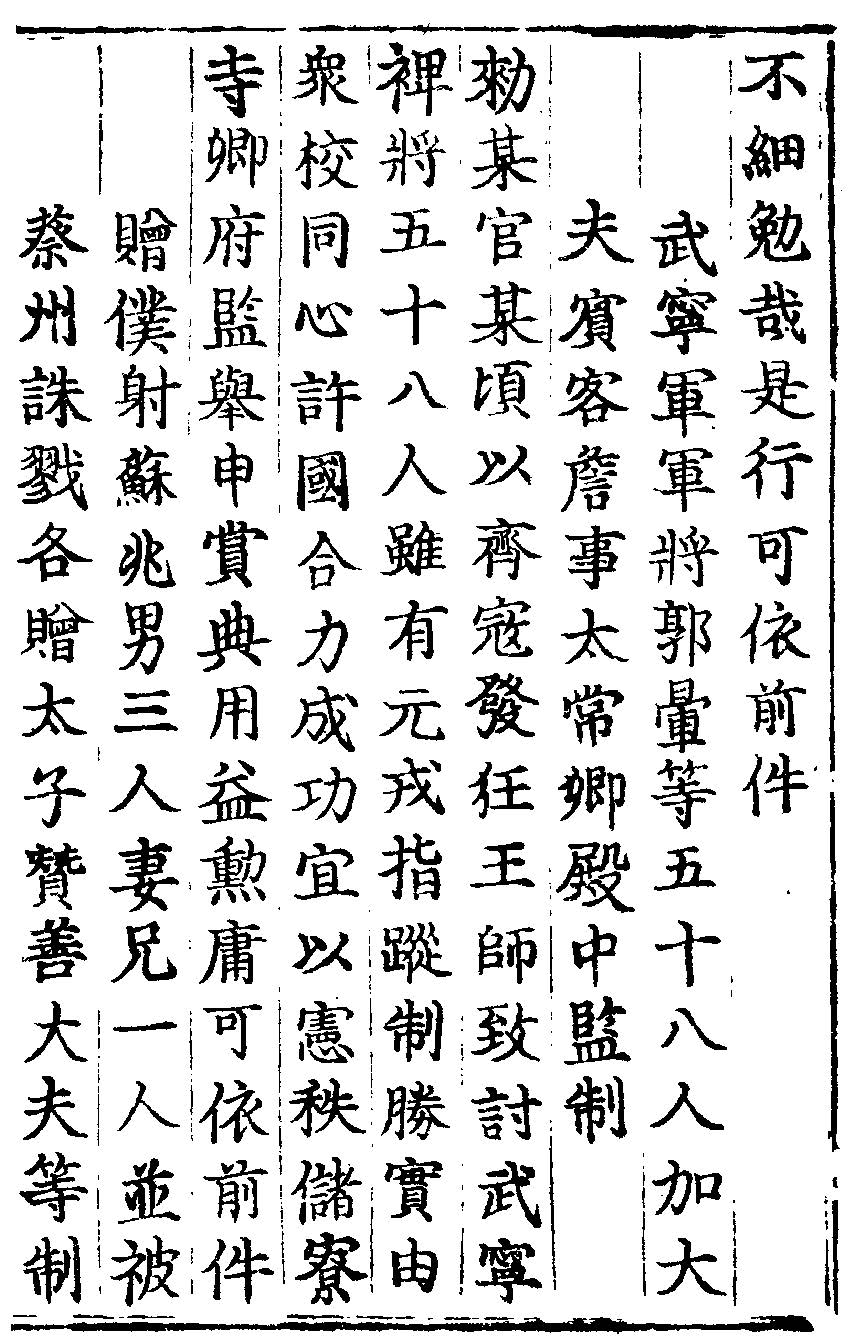 不細勉哉是行可依前件
武寧軍軍將郭暈等五十八人加大
夫賓客詹事太常卿殿中監制
勑某官某頃以齊寇發狂王師致討武寧
裨將五十八人雖有元戎指蹤制勝實由
衆校同心許國合力成功宜以憲秩儲寮
寺卿府監舉申賞典用益勲庸可依前件
贈僕射蘇兆男三人妻兄一人並被
蔡州誅戮各贈太子贊善大夫等制